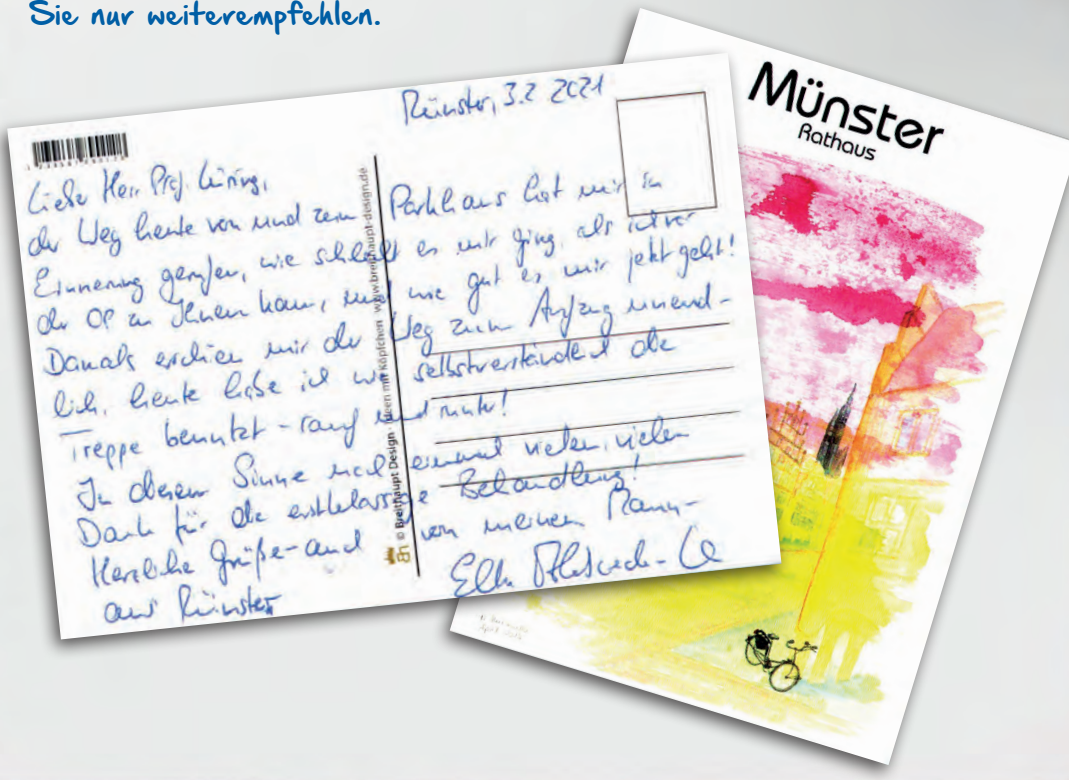 Sie nur weiterempfehlen.
Münster, 3.2 2021
Lieber Herr Prof. Lüring,
der Weg heute von und zum Parkhaus hat mir in
Erinnerung gerufen, wie schlecht es mir ging, als ich vor
der OP zu Ihnen kam, und wie gut es mir jetzt geht!
Damals erschien mir der Weg zum Aufzug unend-
lich, heute habe ich wie selbstverständlich die
Treppe benutzt - rauf und runter!
In diesem Sinne noch einmal vielen, vielen
Dank für die erstklassige Behandlung!
Herzliche Grüße - auch von meinem Mann -
aus Münster
© Breithaupt Design · Ideen mit Köpfchen · www.breithaupt-design.de
Münster
Rathaus